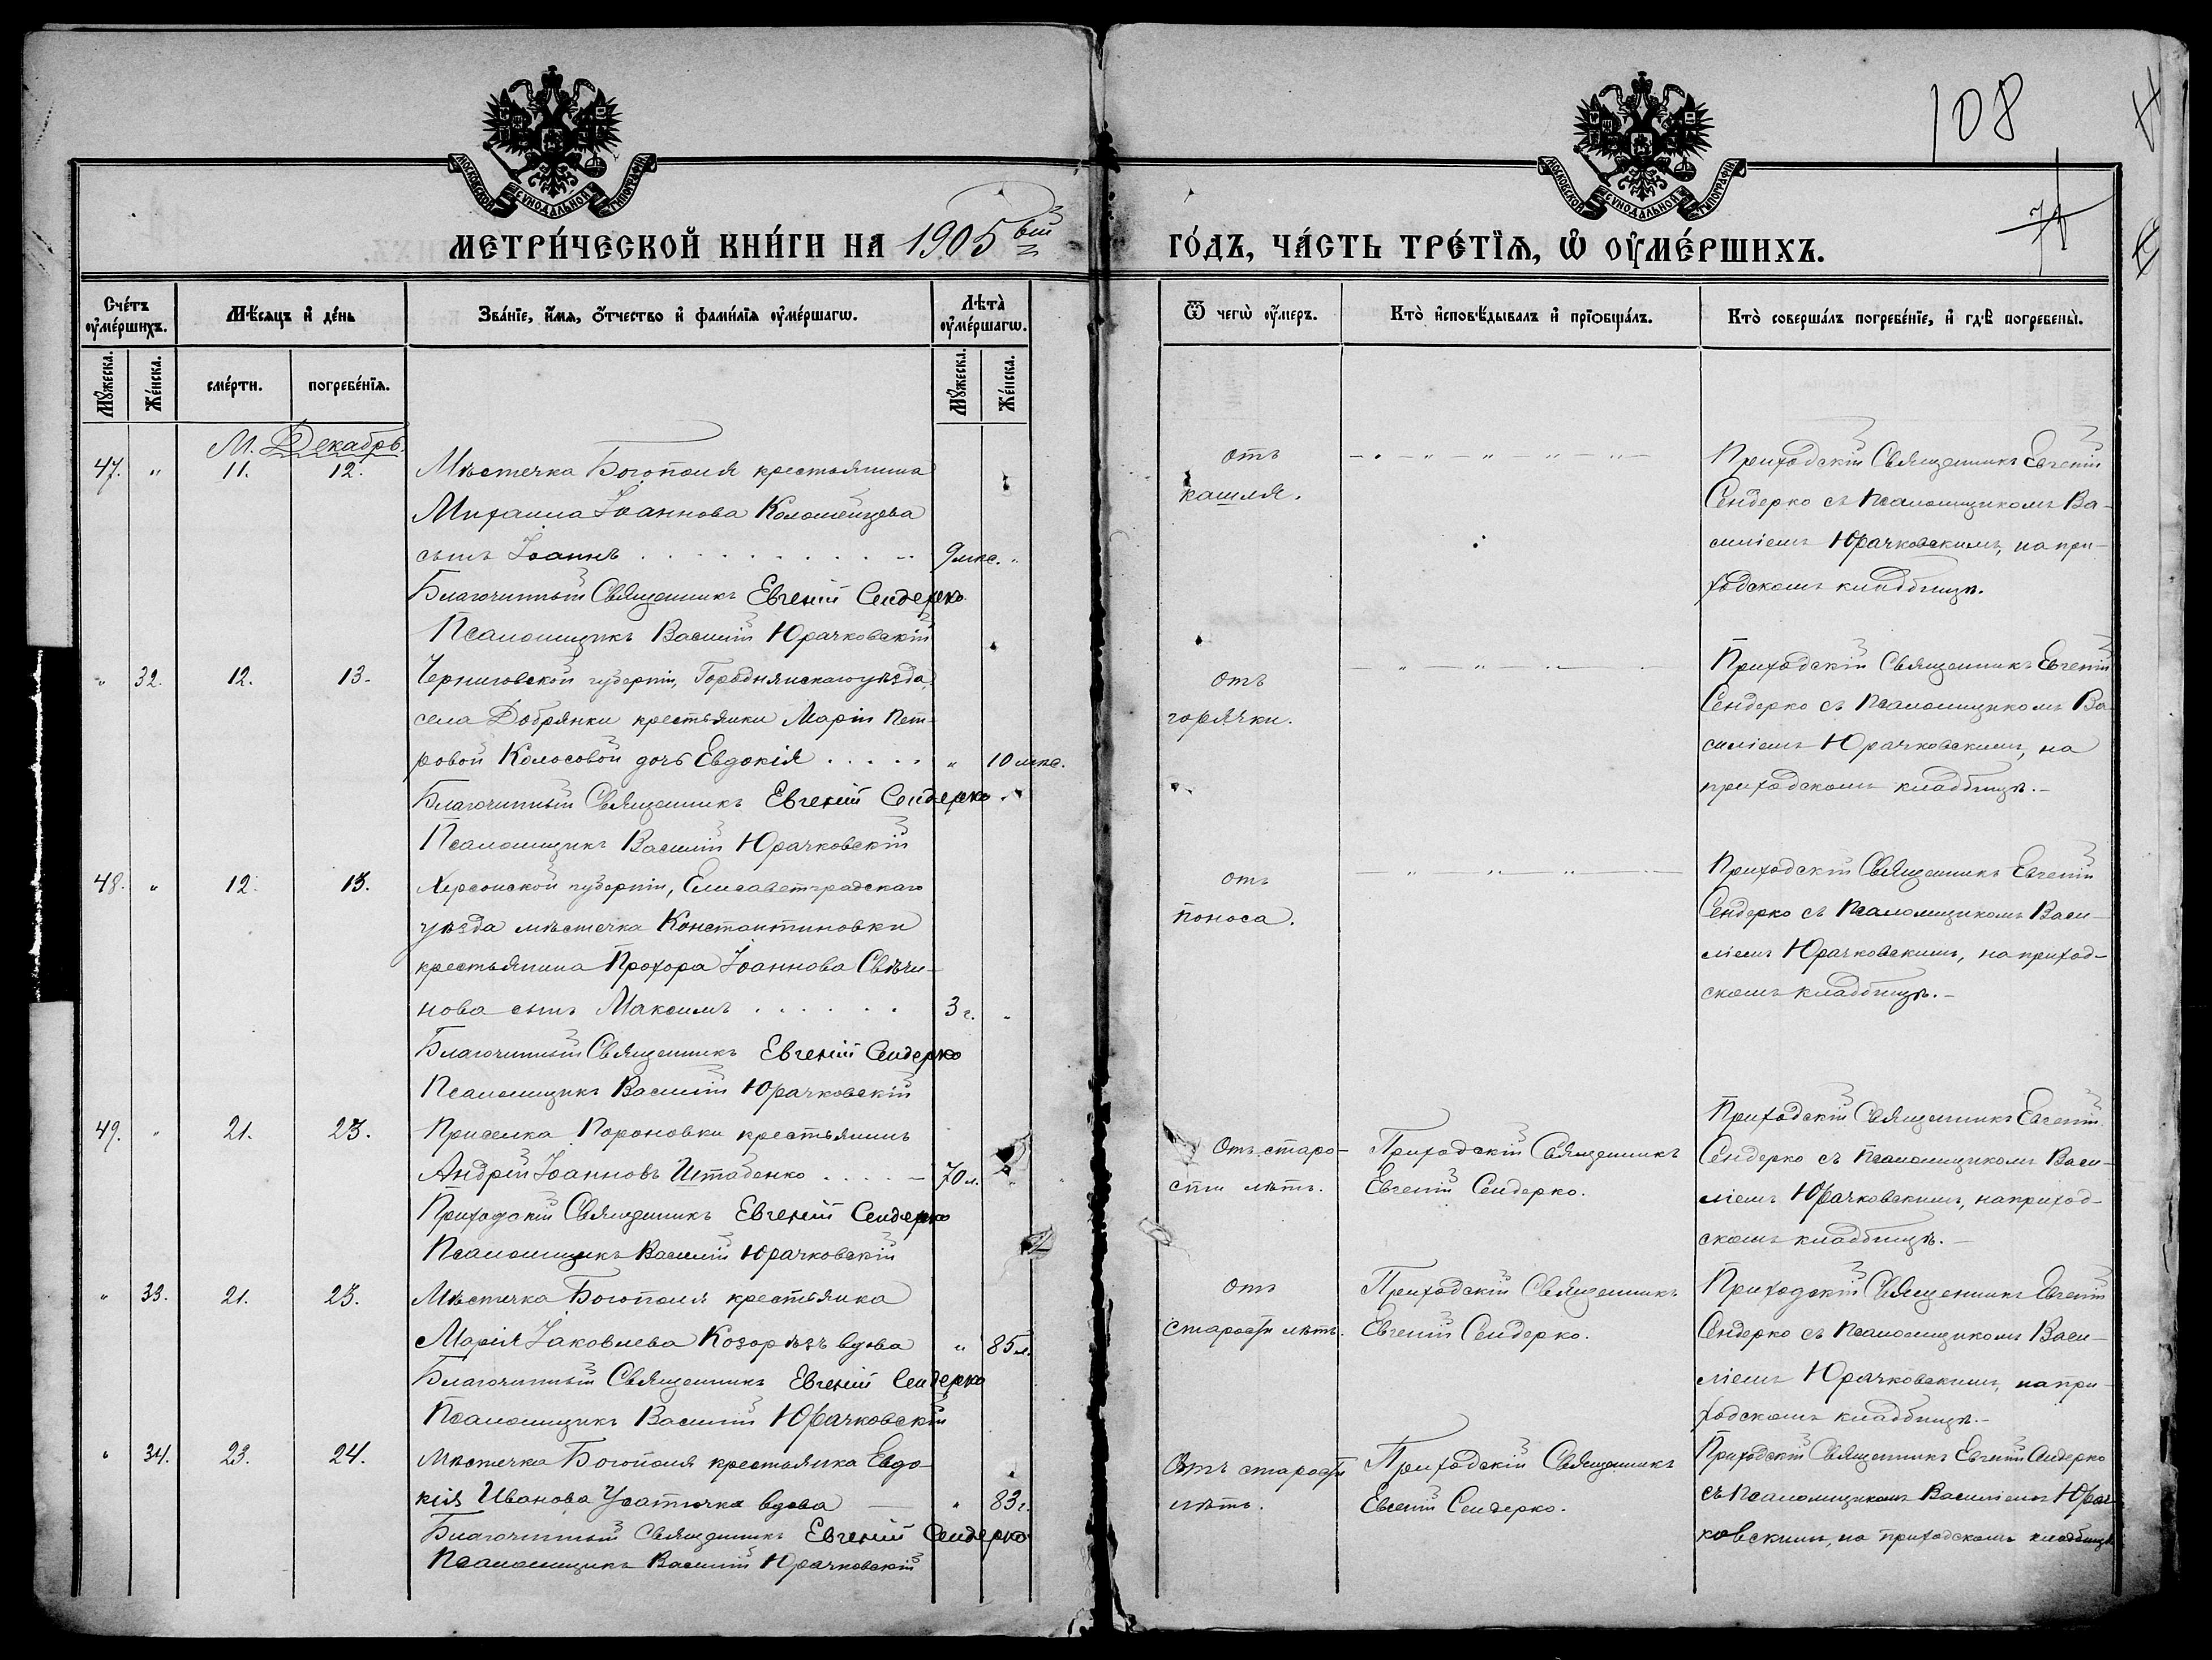 МОСКОВСКОЙ СѴНОДАЛЬНОЙ ТИПОГРАФІИ
МОСКОВСКОЙ СѴНОДАЛЬНОЙ ТИПОГРАФІИ
108
МЕТРИ́ЧЕСКОЙ КНИ́ГИ НА 1905 ый
ГО́ДЪ, ЧА́СТЬ ТРЕ́ТЇѦ, Ѡ҆ ОУ҆МЕ́РШИХЪ.
Сче́тъ оу҆ме́ршихъ.
Мѣ́сяцъ и҆ де́нь
Зва́нїе, и҆́мѧ, ѻ҆́тчество и҆ фами́лїѧ оу҆ме́ршагѡ.
Лѣта̀ оу҆ме́ршагѡ.
Ѿ чегѡ̀ оу҆́меръ.
Кто̀ и҆сповѣ́дывалъ и҆ прїѻбща́лъ.
Кто̀ соверша́лъ погребе́нїе, и҆ гдѣ̀ погребены̀.
Мꙋ́жеска. Же́нска. сме́рти. погребе́нїѧ. Мꙋ́жеска. Же́нска.
М. Декабрь.
47. " 11. 12. Мѣстечка Богополя крестьянина
Михаила Іоаннова Коломейцева
сынъ Іоаннъ . . . . . 9 мѣс. "
Благочинный Священникъ Евгеній Сендерко
Псаломщикъ Василій Юрачковскій
отъ
кашля.
— " — " — " — " —
Приходскій Священникъ Евгеній
Сендерко съ Псаломщикомъ Ва-
силіемъ Юрачковскимъ, на при-
ходскомъ кладбищѣ.
" 32. 12. 13. Черниговской губерніи, Городнянскаго уѣзда,
села Добрянки крестьянки Маріи Пет-
ровой Колосовой дочь Евдокія . . . . . " 10 мѣс.
Благочинный Священникъ Евгеній Сендерко
Псаломщикъ Василій Юрачковскій
отъ
горячки.
— " — " — " — " —
Приходскій Священникъ Евгеній
Сендерко съ Псаломщикомъ Ва-
силіемъ Юрачковскимъ, на
приходскомъ кладбищѣ.—
48. " 12. 13. Херсонской губерніи, Елисаветградскаго
уѣзда мѣстечка Константиновки
крестьянина Прохора Іоаннова Свѣчи-
нова сынъ Максимъ . . . . . . 3 г. "
Благочинный Священникъ Евгеній Сендерко
Псаломщикъ Василій Юрачковскій
отъ
поноса.
— " — " — " — " —
Приходскій Священникъ Евгеній
Сендерко съ Псаломщикомъ Васи-
ліемъ Юрачковскимъ, на приход-
скомъ кладбищѣ.—
49. " 21. 23. Приселка крестьянинъ
Андрей Іоанновъ Штабенко . . . . — 70 л. "
Приходскій Священникъ Евгеній Сендерко
Псаломщикъ Василій Юрачковскій
Отъ старо-
сти лѣтъ.
Приходскій Священникъ
Евгеній Сендерко.
Приходскій Священникъ Евгеній
Сендерко съ Псаломщикомъ Васи-
ліемъ Юрачковскимъ, на приход-
скомъ кладбищѣ.—
" 33. 21. 23. Мѣстечка Богополя крестьянка
Марія Іаковлева Козорѣзъ вдова " 85 л.
Благочинный Священникъ Евгеній Сендерко
Псаломщикъ Василій Юрачковскій
отъ
старости лѣтъ.
Приходскій Священникъ
Евгеній Сендерко.
Приходскій Священникъ Евгеній
Сендерко съ Псаломщикомъ Васи-
ліемъ Юрачковскимъ, на при-
ходскомъ кладбищѣ.—
" 34. 23. 24. Мѣстечка Богополя крестьянка Евдо-
кія Иванова вдова — " 83 г.
Благочинный Священникъ Евгеній Сендерко
Псаломщикъ Василій Юрачковскій
Отъ старости
лѣтъ.
Приходскій Священникъ
Евгеній Сендерко.
Приходскій Священникъ Евгеній Сендерко
съ Псаломщикомъ Василіемъ Юрач-
ковскимъ, на приходскомъ кладбищѣ